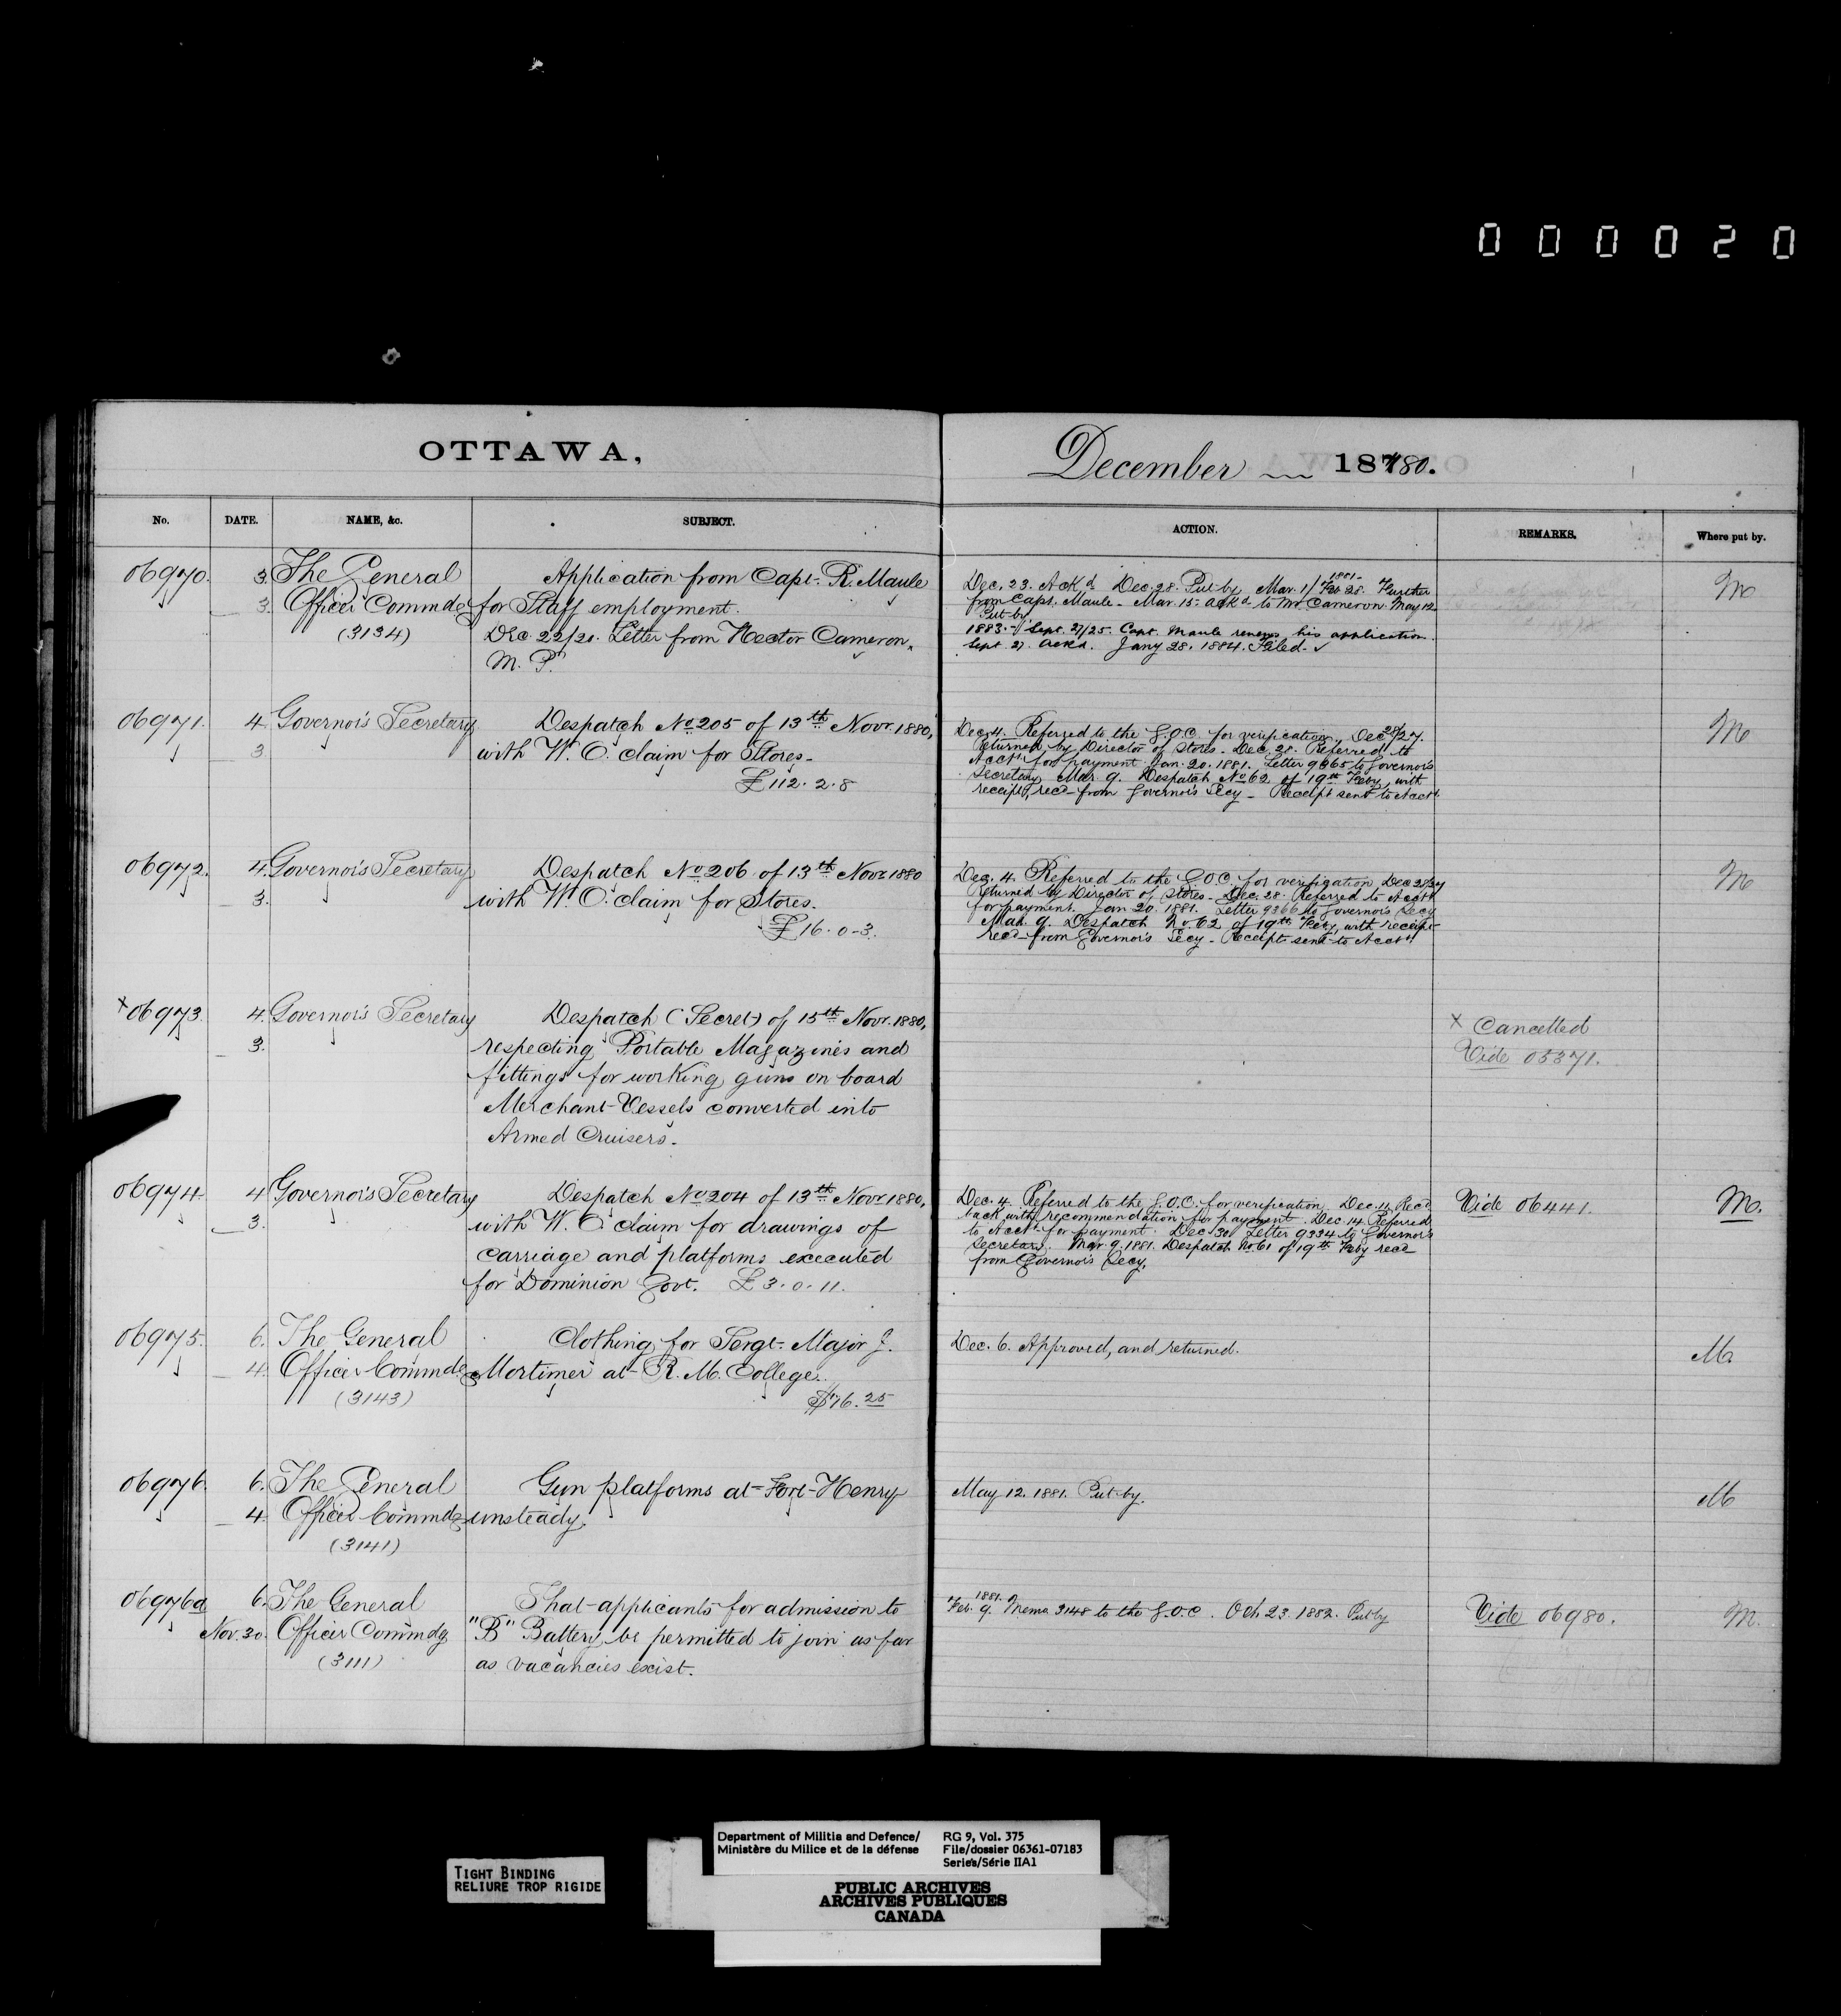 000020
OTTAWA,
December 1880.
No. DATE. NAME, &c. SUBJECT.
ACTION. REMARKS. Where put by.
06970. 3. The General Application from Capt. R. Maule
3. Officer Commdg for Staff employment.
(3134) Dec 22/21. Letter from Hector Cameron,
M. P.
1881-
Dec. 23. Ackd Dec. 28. Put by Mar. 1/Feb 28. Further
from Capt. Maule - Mar. 15- ackd to Mr. Cameron. May 12
Put by
1883.- Sept. 27/25. Capt. Maule renews his application.
Sept 27. Ackd. Jany 28. 1884. Filed.
M
06971. 4. Governor's Secretary Despatch No 205 of 13th Novr. 1880,
3 with W. O. claim for Stores.
£112.2.8
Dec. 4. Referred to the G.O.C. for verification. Dec 28/27.
Returned by Director of Stores. Dec. 28. Referred to
Acctt for payment. Jan. 20. 1881. Letter 9365 to Governor's
Secretary. Mar. 9. Despatch No 62 of 19th Feby, with
receipt, recd from Governor's Secy - Receipt sent to Acctt.
M
06972. 4. Governor's Secretary Despatch No 206 of 13th Novr. 1880
3. with W. O. claim for Stores.
£16.0-3.
Dec. 4. Referred to the G.O.C. for verification Dec 28/27
Returned by Director of Stores - Dec. 28. Referred to Acctt
for payment. Jan 20. 1881. Letter 9366 to Governor's Secy
Mar. 9. Despatch No 62 of 19th Feby, with receipt
recd from Governor's Secy - Receipt sent to Acctt
M
x 06973. 4. Governor's Secretary Despatch (Secret) of 15th Novr. 1880,
3. respecting Portable Magazines and
fittings for working guns on board
Merchant Vessels converted into
Armed Cruisers.
x Cancelled
Vide 05371.
06974. 4 Governor's Secretary Despatch No 204 of 13th Novr 1880,
3. with W. O. claim for drawings of
carriage and platforms executed
for Dominion Govt. £3.0.11.
Dec. 4. Referred to the G.O.C. for verification Dec. 11. Recd
back with recommendation for payment. Dec. 14. Referred
to Acctt for payment. Dec. 30. Letter 9334 to Governor's
Secretary. Mar. 9. 1881. Despatch No 61 of 19th Feby recd
from Governor's Secy.
Vide 06441.
M.
06975. 6. The General Clothing for Sergt. Major J.
4. Officer Commdg Mortimer at R. M. College.
(3143) $76.25
Dec. 6. Approved, and returned.
M.
06976. 6. The General Gun platforms at Fort Henry
4. Officer Commdg unsteady.
(3141)
May 12. 1881. Put by.
M
06976a 6. The General That applicants for admission to
Nov. 30. Officer Commdg "B" Battery be permitted to join as far
(3111) as vacancies exist.
1881.
Feb. 9. Memo 3148 to the G.O.C. Oct 23. 1882. Put by
Vide 06980.
M.
TIGHT BINDING
RELIURE TROP RIGIDE
Department of Militia and Defence/
Ministère du Milice et de la défense
RG 9, Vol. 375
File/dossier 06361-07183
Series/Série IIA1
PUBLIC ARCHIVES
ARCHIVES PUBLIQUES
CANADA